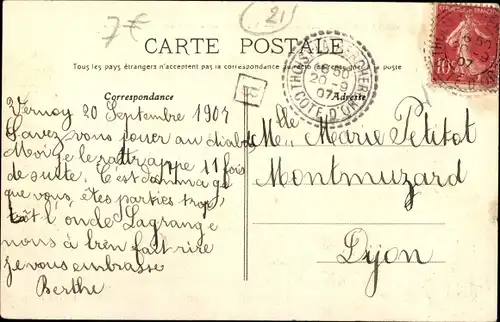 7€
21
CARTE POSTALE
Tous les pays étrangers n'acceptent pas la correspondance au recto
poste
Correspondance
Adresse
20 -9
07
COTE D'OR
10
Vernoy 20 Septembre 1907
Savez vous jouer au diabolo
Moi je le rattrappe 11 fois
de suite. C'est dommage
que vous êtes parties trop
tôt l'oncle Lagrange
nous à bien fait rire
je vous embrasse
Berthe
Mlle Marie Petitot
Montmuzard
Dijon